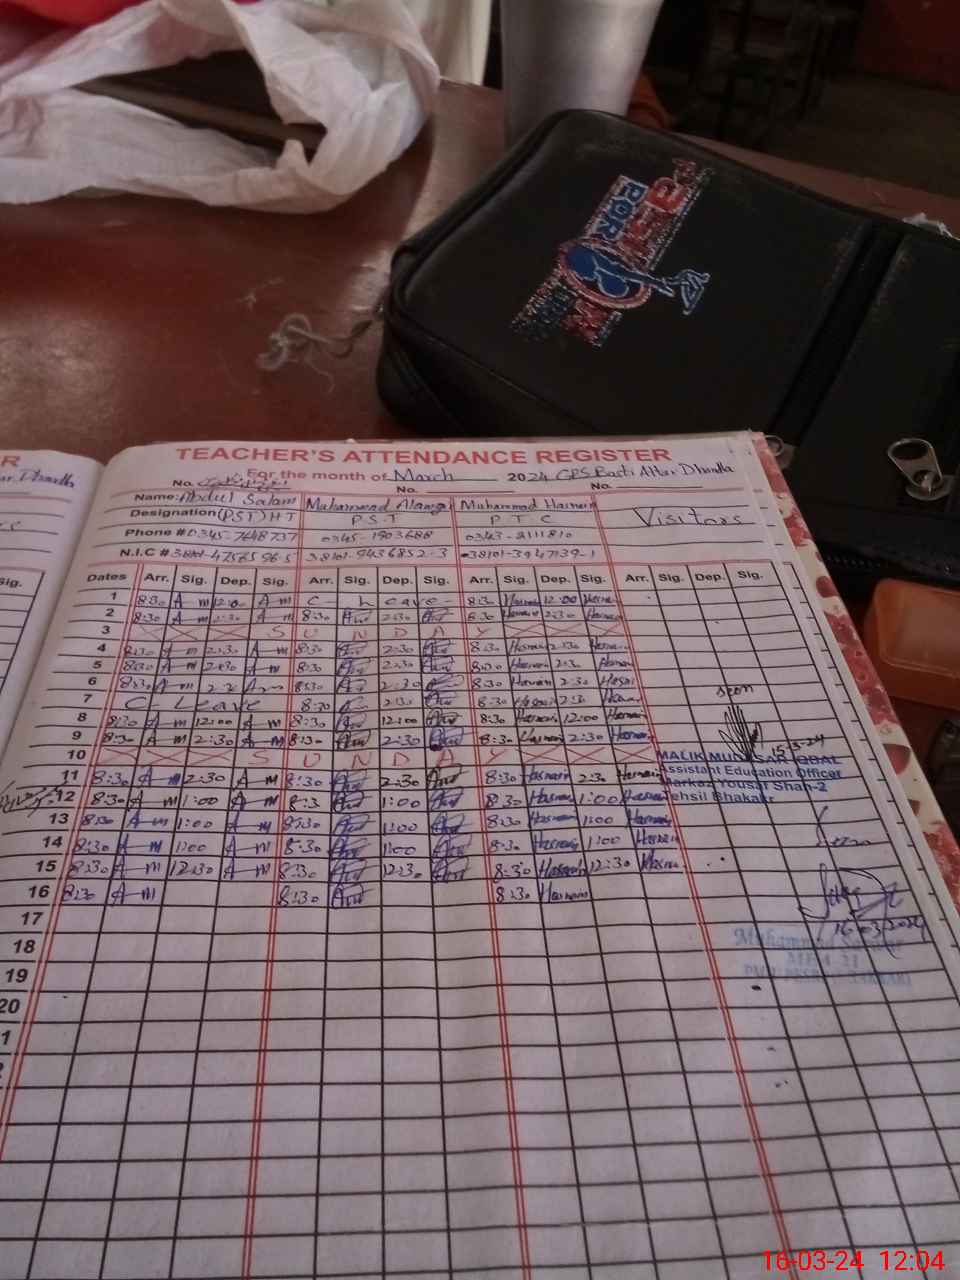 R
TEACHER'S ATTENDANCE REGISTER
For the month of March 2024 GPS Basti Attar Dhandla
No. No. No.
Name: Abdul Salam Muhammad Alamgir Muhammad Hasnain
Designation (PST) HT P.S.T P.T.C Visitors
Phone # 0345-7648737 0345-1903688 0343-8111810
N.I.C #
Sig. Dates Arr. Sig. Dep. Sig. Arr. Sig. Dep. Sig. Arr. Sig. Dep. Sig. Arr. Sig. Dep. Sig.
1 8:30 A m 12:00 A m C Leave 8:30 Hasnain 12:00 Hasnain
2 8:30 A m 2:30 A m 8:30 2:30 8:30 Hasnain 2:30 Hasnain
3 S U N D A Y
4 8:30 A m 2:30 A m 8:30 2:30 8:30 Hasnain 2:30 Hasnain
5 8:30 A m 2:30 A m 8:30 2:30 8:30 Hasnain 2:30 Hasnain
6 8:30 A m 8:30 2:30 8:30 Hasnain 2:30
7 C- Leave 8:30 2:30 8:30 2:30
8 8:30 A m 12:00 A m 8:30 12:00 8:30 Hasnain 12:00 Hasnain
9 8:30 A m 2:30 A m 8:30 2:30 8:30 Hasnain 2:30 Hasnain
seen
15-3-24
10 S U N D A Y
MALIK MUDASAR IQBAL
Assistant Education Officer
Markaz Yousaf Shah-2
Tehsil Bhakkar
11 8:30 A m 2:30 A m 8:30 2:30 8:30 Hasnain 2:30 Hasnain
12 8:30 A m 1:00 A m 8:3 1:00 8:30 Hasnain 1:00 Hasnain
13 8:30 A m 1:00 A m 8:30 1:00 8:30 Hasnain 1:00 Hasnain
14 8:30 A m 1:00 A m 8:30 1:00 8:30 Hasnain 1:00 Hasnain
15 8:30 A m 12:30 A m 8:30 12:30 8:30 Hasnain 12:30 Hasnain
16 8:30 A m 8:30 8:30 Hasnain
17
16-03-2024
18
Muhammad
MEA 21
19
20
1
2
16-03-24 12:04